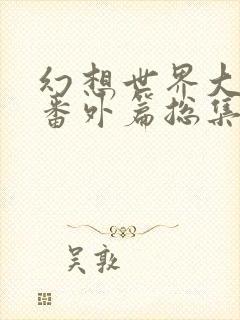 幻想世界大
番外篇总集
吴敦